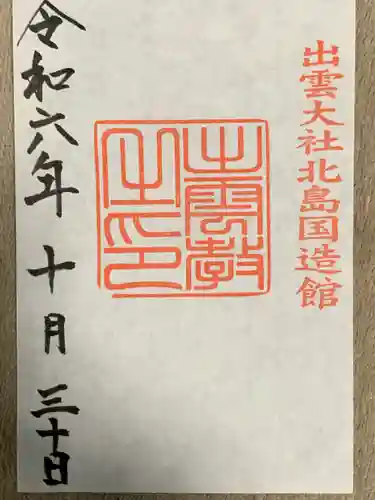 出雲大社北島国造館
出雲教之印
令和六年十月三十日